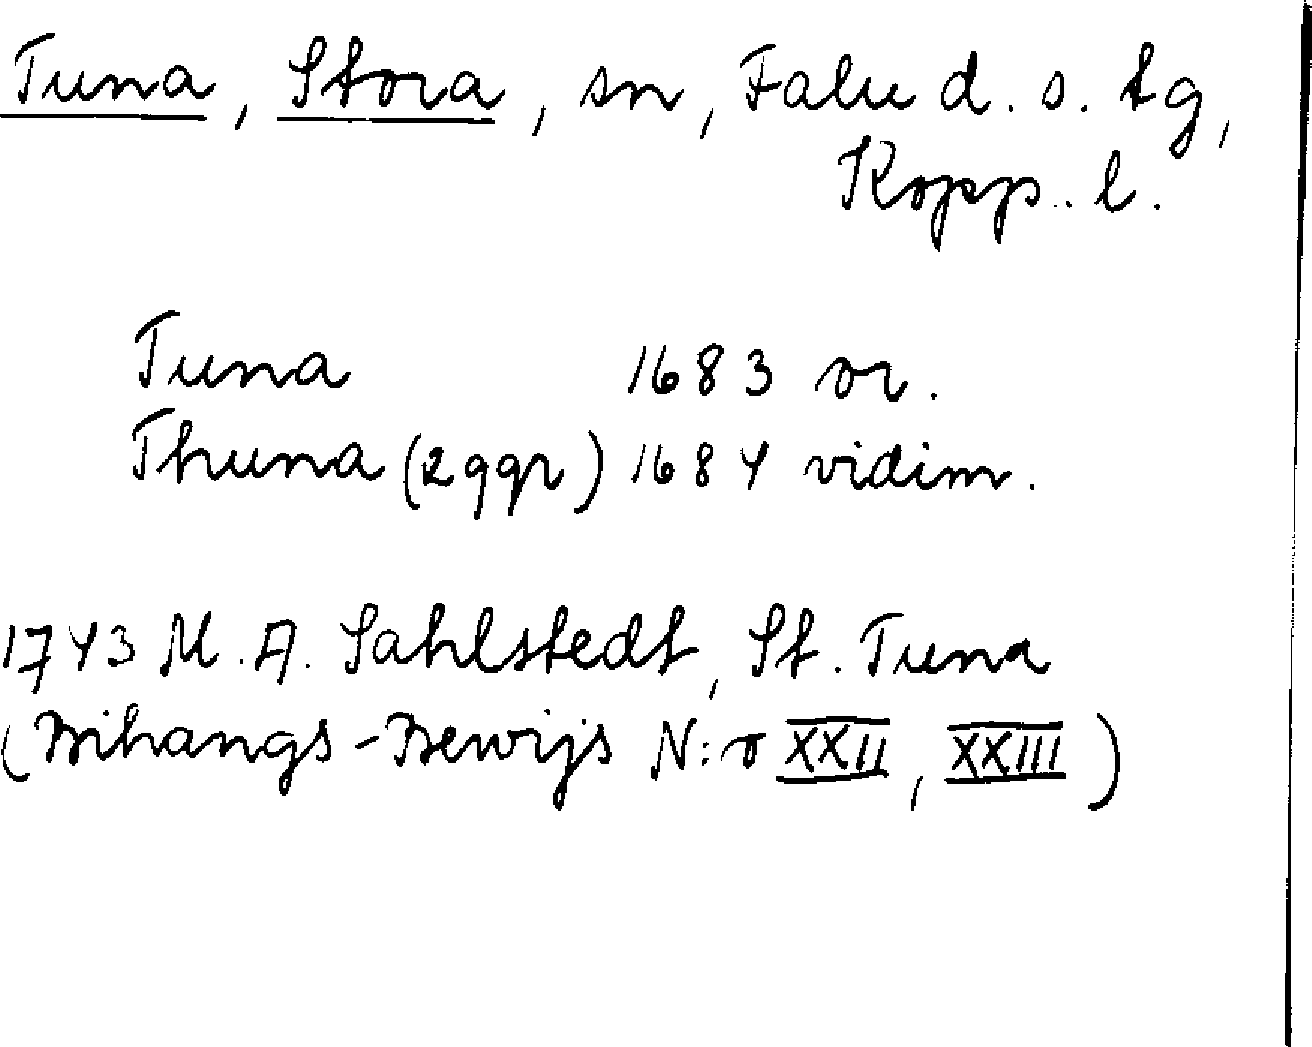 Tuna, Stora, sn, Falu d. s. tg,
Kopp. l.
Tuna 1683 or.
Thuna (2ggr) 1684 vidim.
1743 M. A. Sahlstedt, St. Tuna
(Bihangs-Bewijs N:o XXII, XXIII)